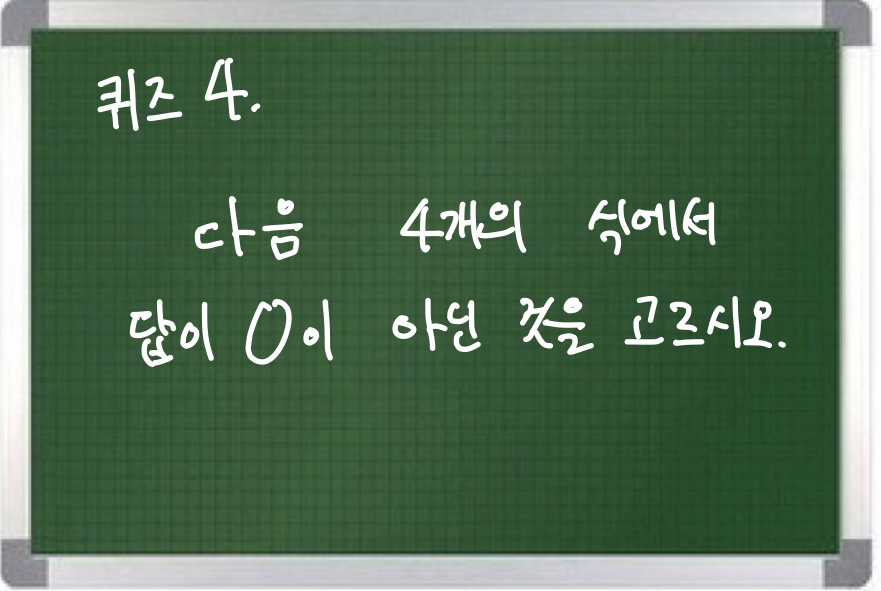 퀴즈 4.
다음 4개의 식에서
답이 0이 아닌 것을 고르시오.